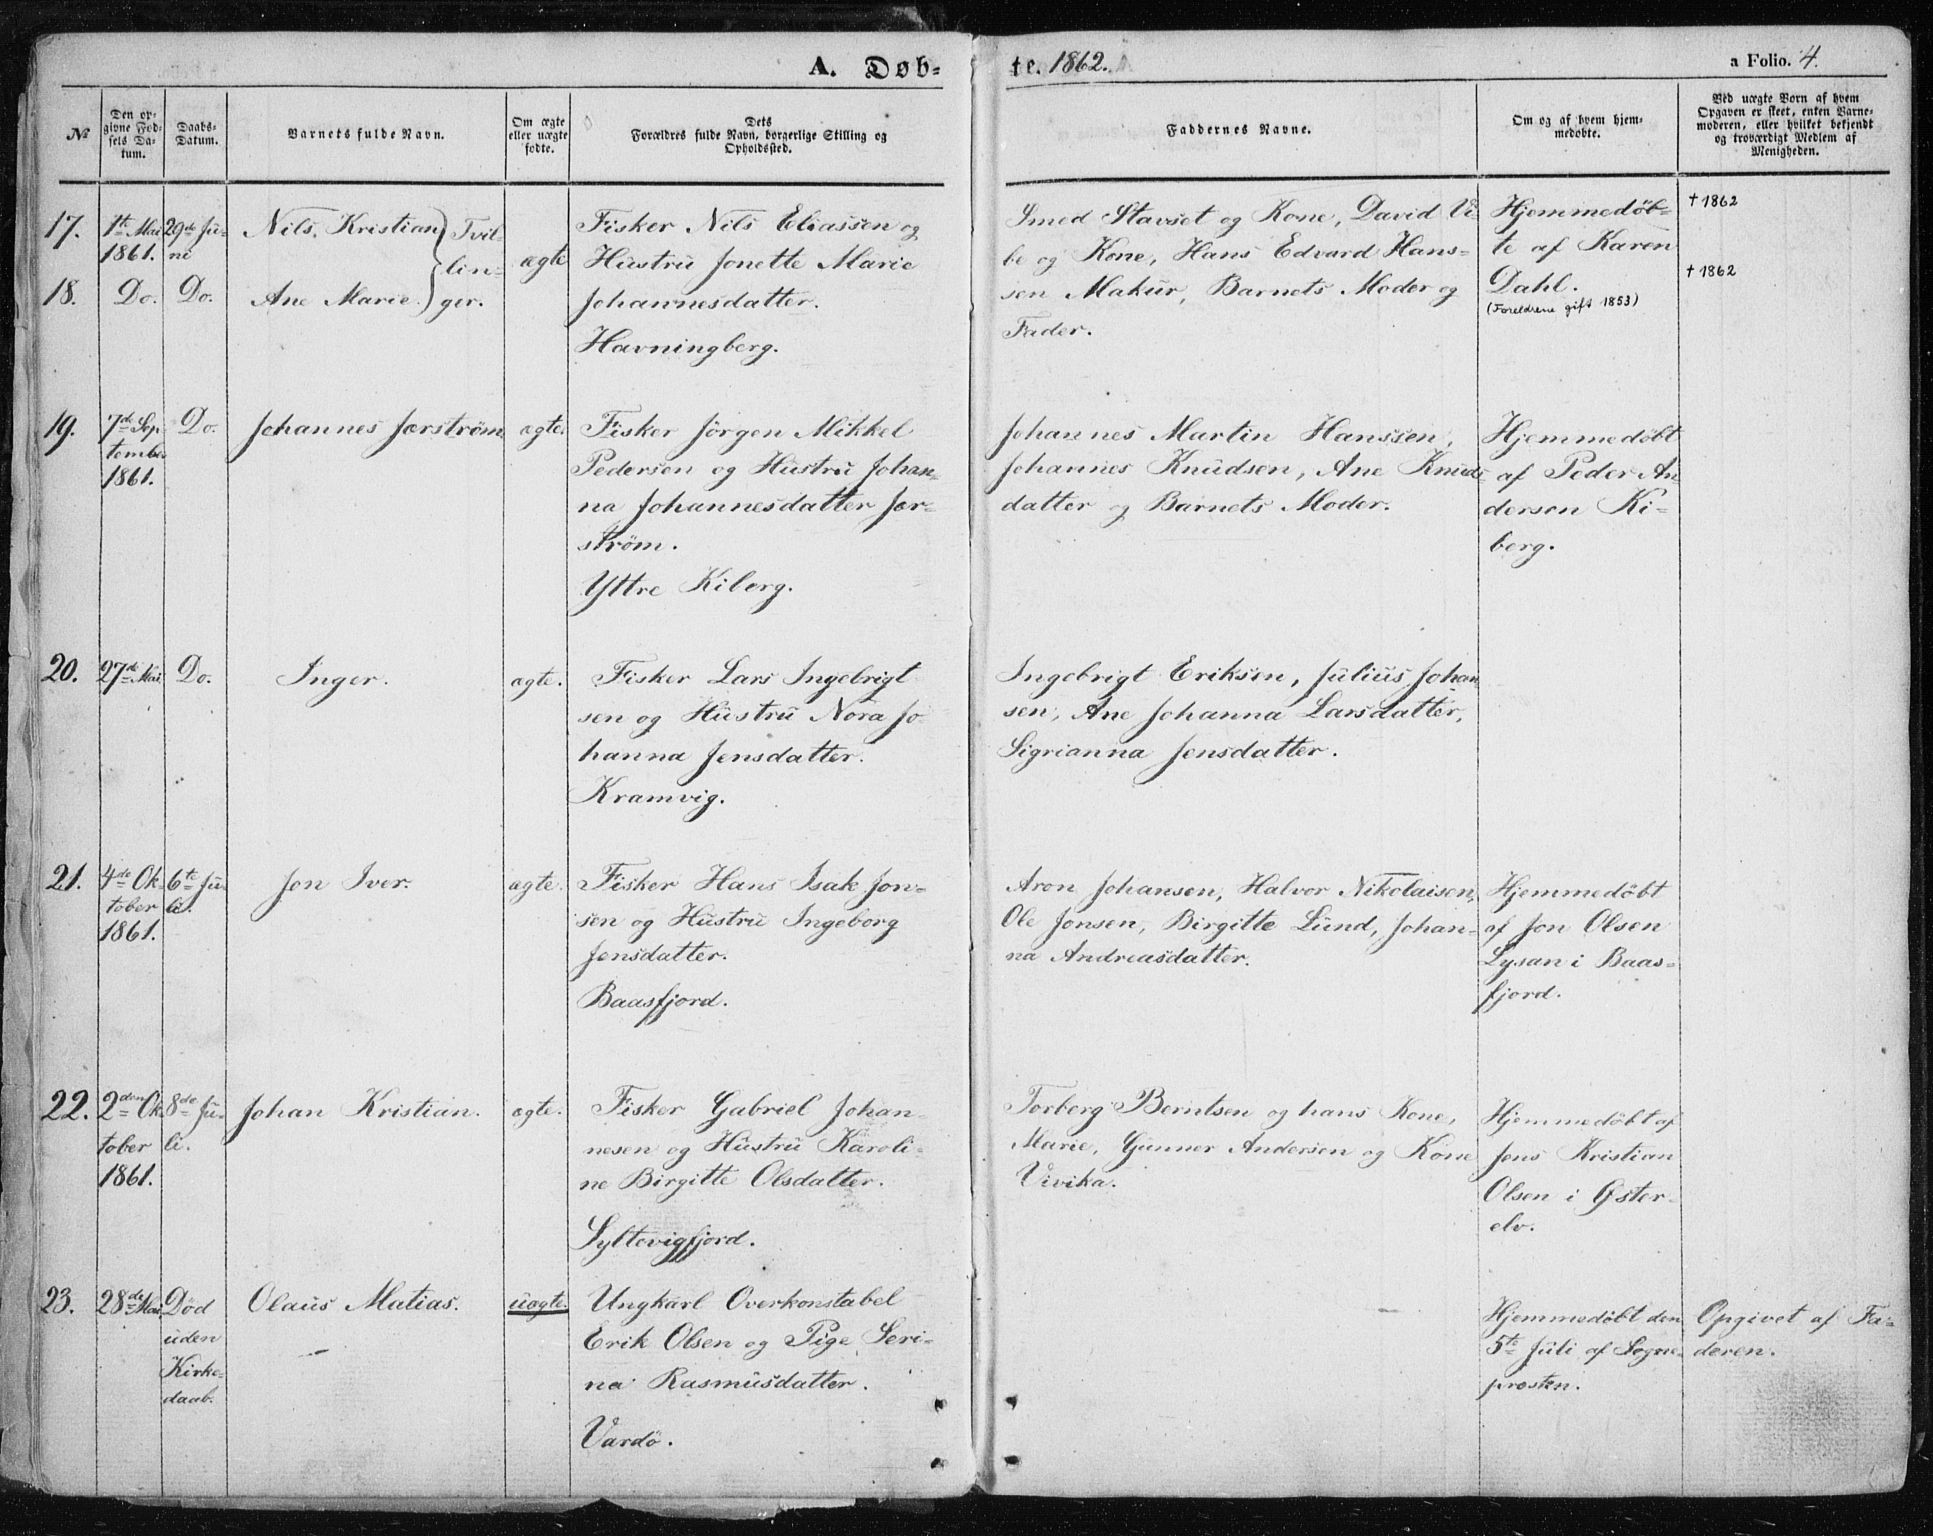 A. Døb-
te. 1862.
a Folio. 4.
№
Den op-
givne Fød-
sels Da-
tum.
Daabs-
Datum.
Barnets fulde Navn.
Om ægte
eller uægte
fødte.
Dets
Forældres fulde Navn, borgerlige Stilling og
Opholdssted.
Faddernes Navne.
Om og af hvem hjem-
medøbte.
Ved uægte Børn af hvem
Opgaven er skeet, enten Barne-
moderen, eller hvilket bekjendt
og troværdigt Medlem af
Menigheden.
17.
1te Mai
1861.
29de Ju-
ni
Nils Kristian } Tvil-
lin-
18.
Do.
Do.
Ane Marie. } ger.
ægte
Fisker Nils Eliassen og
Hustru Jonette Marie
Johannesdatter.
Havningberg.
Smed Stavset og Kone, David Vi-
be og Kone, Hans Edvard Hans-
sen Makur, Barnets Moder og
Fader.
Hjemmedøb-
te af Karen
Dahl.
(Foreldrene gift 1853)
† 1862
† 1862
19.
7de Sep-
tember
1861.
Do.
Johannes Jærström
ægte.
Fisker Jörgen Mikkel
Pedersen og Hustru Johan-
na Johannesdatter Jær-
ström.
Yttre Kiberg.
Johannes Martin Hanssen,
Johannes Knudsen, Ane Knuds-
datter og Barnets Moder.
Hjemmedøbt
af Peder An
dersen Ki-
berg.
20.
27de Mai
Do.
Inger.
ægte.
Fisker Lars Ingebrigt
sen og Hustru Nora Jo
hanna Jensdatter.
Kramvig.
Ingebrigt Eriksen, Julius Johan
sen, Ane Johanna Larsdatter,
Sigrianna Jensdatter.
21.
4de Ok-
tober
1861.
6te Ju-
li.
Jon Iver.
ægte.
Fisker Hans Isak Jon-
sen og Hustru Ingeborg
Jensdatter.
Baasfjord.
Aron Johansen, Halvor Nikolaisen,
Ole Jonsen, Birgitte Lund, Johan-
na Andreasdatter.
Hjemmedøbt
af Jon Olsen
Lysan i Baas-
fjord.
22.
2den Ok-
tober
1861.
8de Ju-
li.
Johan Kristian.
ægte.
Fisker Gabriel Johan-
nesen og Hustru Karoli-
ne Birgitte Olsdatter.
Syltevigfjord.
Torberg Berntsen og hans Kone,
Marie, Gunner Andersen og Kone
Vivika.
Hjemmedøbt af
Jens Kristian
Olsen i Øster-
elv.
23.
28de Mai
Død
uden
Kirke-
daab.
Olaus Matias.
uægte.
Ungkarl Overkonstabel
Erik Olsen og Pige Seri-
na Rasmusdatter.
Vardö.
Hjemmedøbt den
5te Juli af Sogne-
prosten.
Opgivet af Fa-
deren.